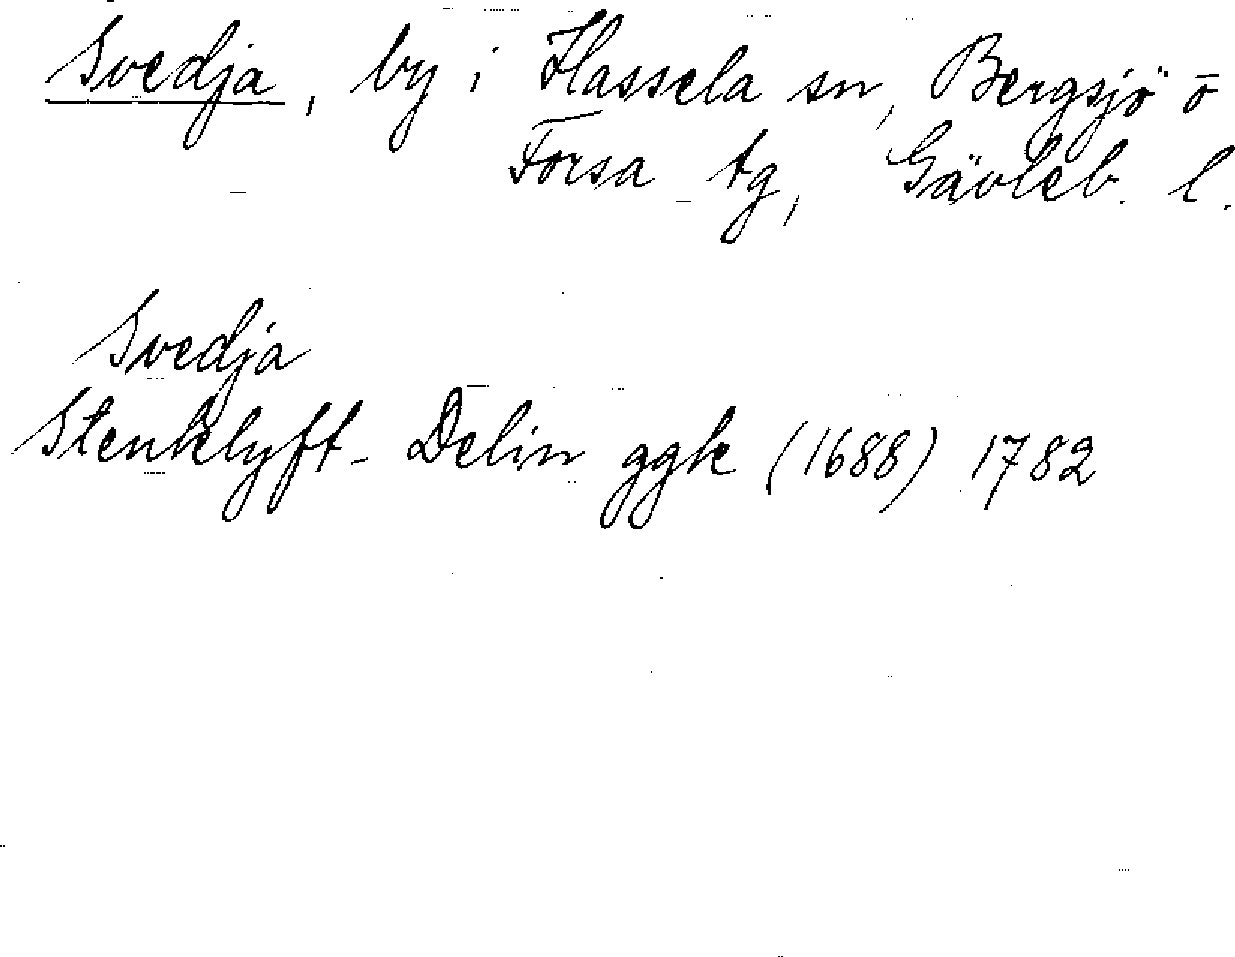 Svedja, by i Hassela sn, Bergsjö o
Forsa tg, Gävleb. l.
Svedja
Stenklyft- Delin ggk (1688) 1782